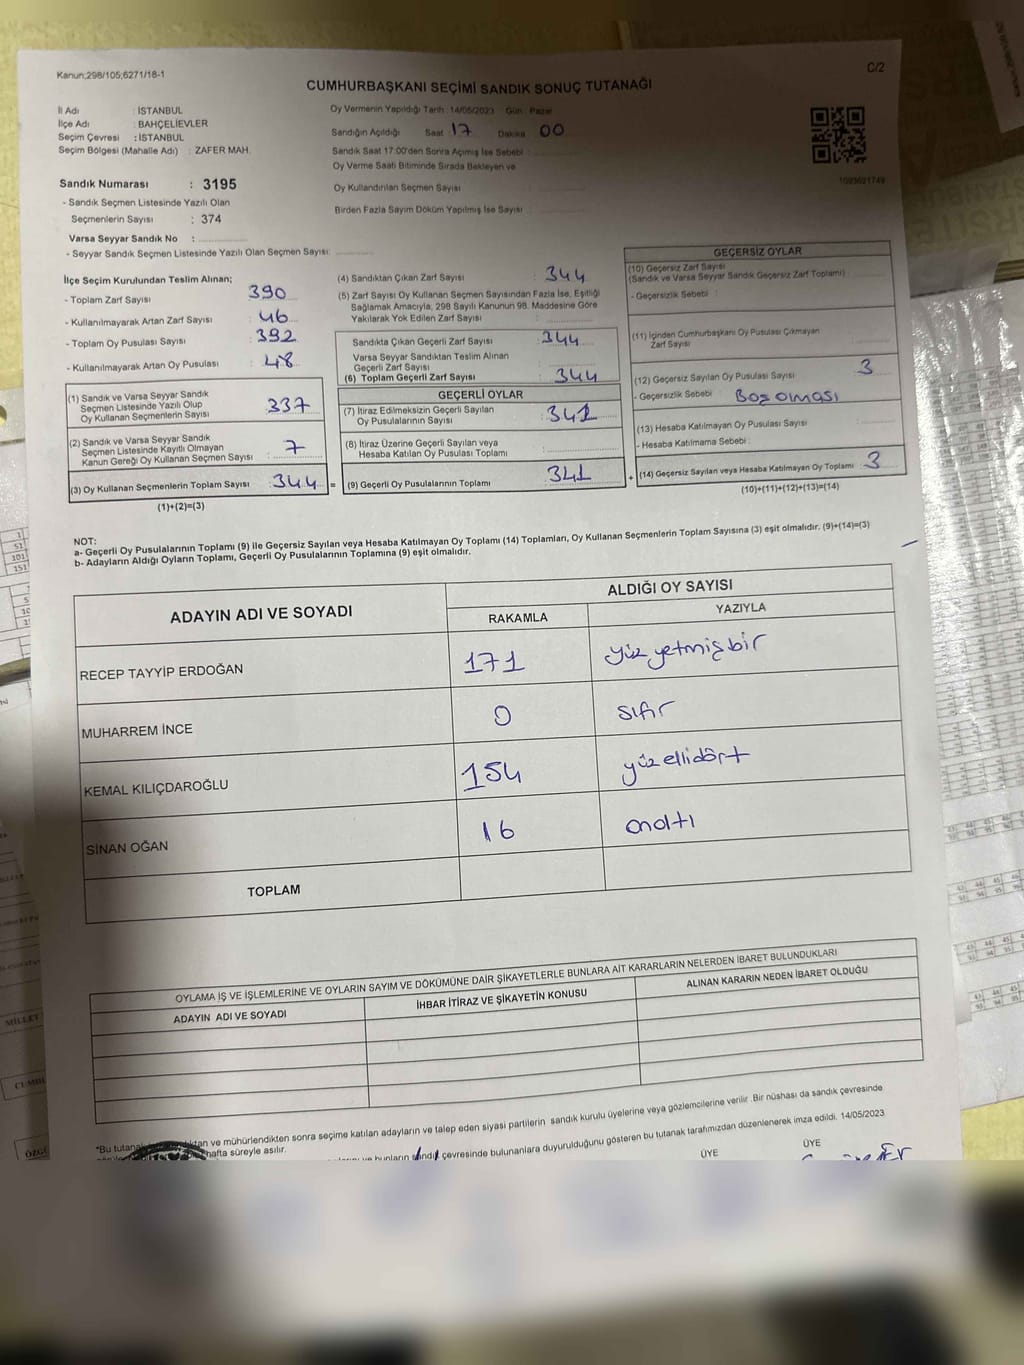 Kanun;298/105;6271/18-1
C/2
CUMHURBAŞKANI SEÇİMİ SANDIK SONUÇ TUTANAĞI
İl Adı : İSTANBUL
İlçe Adı : BAHÇELİEVLER
Seçim Çevresi : İSTANBUL
Seçim Bölgesi (Mahalle Adı) : ZAFER MAH.
Oy Vermenin Yapıldığı Tarih : 14/05/2023 Gün : Pazar
Sandığın Açıldığı Saat 17 Dakika 00
Sandık Saat 17:00'den Sonra Açılmış İse Sebebi :
Oy Verme Saati Bitiminde Sırada Bekleyen ve
Oy Kullandırılan Seçmen Sayısı :
Birden Fazla Sayım Döküm Yapılmış İse Sayısı :
1093621749
Sandık Numarası : 3195
- Sandık Seçmen Listesinde Yazılı Olan
Seçmenlerin Sayısı : 374
Varsa Seyyar Sandık No :
- Seyyar Sandık Seçmen Listesinde Yazılı Olan Seçmen Sayısı:
İlçe Seçim Kurulundan Teslim Alınan;
- Toplam Zarf Sayısı : 390
- Kullanılmayarak Artan Zarf Sayısı : 46
- Toplam Oy Pusulası Sayısı : 392
- Kullanılmayarak Artan Oy Pusulası : 48
(1) Sandık ve Varsa Seyyar Sandık
Seçmen Listesinde Yazılı Olup
Oy Kullanan Seçmenlerin Sayısı : 337
(2) Sandık ve Varsa Seyyar Sandık
Seçmen Listesinde Kayıtlı Olmayan
Kanun Gereği Oy Kullanan Seçmen Sayısı : 7
(3) Oy Kullanan Seçmenlerin Toplam Sayısı : 344 =
(1)+(2)=(3)
(4) Sandıktan Çıkan Zarf Sayısı : 344
(5) Zarf Sayısı Oy Kullanan Seçmen Sayısından Fazla İse, Eşitliği
Sağlamak Amacıyla, 298 Sayılı Kanunun 98. Maddesine Göre
Yakılarak Yok Edilen Zarf Sayısı :
Sandıkta Çıkan Geçerli Zarf Sayısı : 344
Varsa Seyyar Sandıktan Teslim Alınan
Geçerli Zarf Sayısı :
(6) Toplam Geçerli Zarf Sayısı : 344
GEÇERLİ OYLAR
(7) İtiraz Edilmeksizin Geçerli Sayılan
Oy Pusulalarının Sayısı : 341
(8) İtiraz Üzerine Geçerli Sayılan veya
Hesaba Katılan Oy Pusulası Toplamı :
(9) Geçerli Oy Pusulalarının Toplamı : 341 +
GEÇERSİZ OYLAR
(10) Geçersiz Zarf Sayısı
(Sandık ve Varsa Seyyar Sandık Geçersiz Zarf Toplamı) :
- Geçersizlik Sebebi :
(11) İçinden Cumhurbaşkanı Oy Pusulası Çıkmayan
Zarf Sayısı :
(12) Geçersiz Sayılan Oy Pusulası Sayısı : 3
- Geçersizlik Sebebi : Boş olması
(13) Hesaba Katılmayan Oy Pusulası Sayısı :
- Hesaba Katılmama Sebebi :
(14) Geçersiz Sayılan veya Hesaba Katılmayan Oy Toplamı : 3
(10)+(11)+(12)+(13)=(14)
NOT:
a- Geçerli Oy Pusulalarının Toplamı (9) ile Geçersiz Sayılan veya Hesaba Katılmayan Oy Toplamı (14) Toplamları, Oy Kullanan Seçmenlerin Toplam Sayısına (3) eşit olmalıdır. (9)+(14)=(3)
b- Adayların Aldığı Oyların Toplamı, Geçerli Oy Pusulalarının Toplamına (9) eşit olmalıdır.
ADAYIN ADI VE SOYADI
ALDIĞI OY SAYISI
RAKAMLA YAZIYLA
RECEP TAYYİP ERDOĞAN 171 yüz yetmiş bir
MUHARREM İNCE 0 sıfır
KEMAL KILIÇDAROĞLU 154 yüz ellidört
SİNAN OĞAN 16 onaltı
TOPLAM
OYLAMA İŞ VE İŞLEMLERİNE VE OYLARIN SAYIM VE DÖKÜMÜNE DAİR ŞİKAYETLERLE BUNLARA AİT KARARLARIN NELERDEN İBARET BULUNDUKLARI
ADAYIN ADI VE SOYADI İHBAR İTİRAZ VE ŞİKAYETİN KONUSU ALINAN KARARIN NEDEN İBARET OLDUĞU
*Bu tutanak ve mühürlendikten sonra seçime katılan adayların ve talep eden siyasi partilerin sandık kurulu üyelerine veya gözlemcilerine verilir. Bir nüshası da sandık çevresinde
hafta süreyle asılır.
bunların sandık çevresinde bulunanlara duyurulduğunu gösteren bu tutanak tarafımızdan düzenlenerek imza edildi. 14/05/2023
ÜYE ÜYE